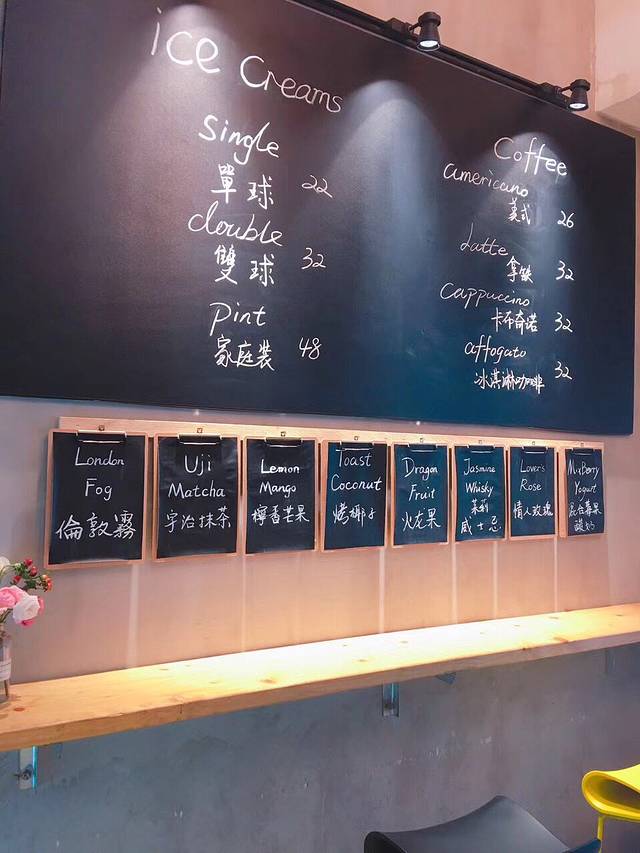 ice creams
Single
單球 22
double
雙球 32
Pint
家庭裝 48
Coffee
americano
美式 26
Latte
拿鐵 32
Cappuccino
卡布奇诺 32
affogato
冰淇淋咖啡 32
London
Fog
倫敦霧
Uji
Matcha
宇治抹茶
Lemon
Mango
檸香芒果
Toast
Coconut
烤椰子
Dragon
Fruit
火龙果
Jasmine
Whisky
茉莉
威士忌
Lover's
Rose
情人玫瑰
MixBerry
Yogurt
混合莓果
酸奶